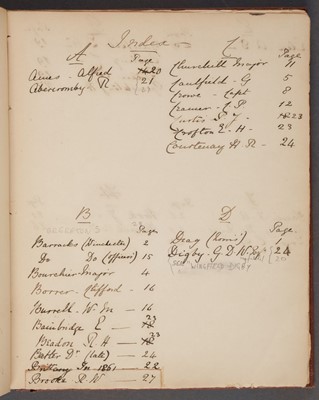 Index
A
Page
Ames - Alfred 20
Abercromby R 21
C
Page
Churchill Major 11
Caulfield - G 5
Crowe - Capt 8
Cramer - C P 12
Curtis - 23
Crofton E. H. - 23
Courtenay H R - 24
B
Page
Barracks (Winchester) 2
Do Do (Officers) 15
Bourchier Major 4
Borrer - Clifford - 16
Burrell - W. - 16
Bainbridge E - 23
Bladon R H - 23
Dr (late) - 24
In 1861 - 22
Brooke R. W - 27
D
Page
Drag 1
Digby - G D W. Esq 24
WINGFIELD DIGBY